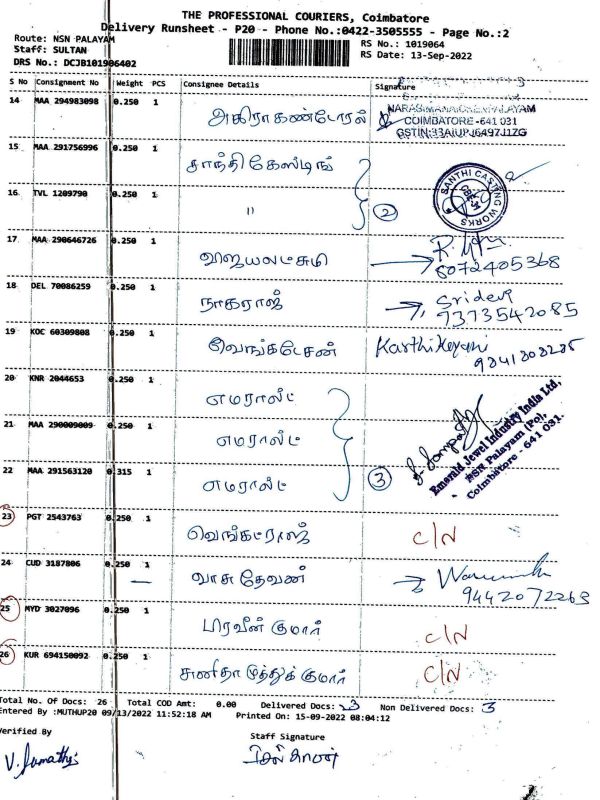 THE PROFESSIONAL COURIERS, Coimbatore
Delivery Runsheet - P20 - Phone No.:0422-3505555 - Page No.:2
Route: NSN PALAYAM
RS No.: 1019064
Staff: SULTAN
RS Date: 13-Sep-2022
DRS No.: DCJB101906402
S No Consignment No Weight PCS Consignee Details Signature
14 MAA 294983098 0.250 1
COIMBATORE-641 031
GSTIN:33AIUPJ6497J1ZG
15 MAA 291756996 0.250 1 சாந்தி கேஸ்டிங்
16 TVL 1209790 0.250 1 " 2 SANTHI CASTING WORKS
17 MAA 290646726 0.250 1 விஜயலட்சுமி
8072405368
18 DEL 70086259 0.250 1 நாகராஜ் Sridevi
7373542085
19 KOC 60309808 0.250 1 வெங்கடேசன் Karthikeyani
20 KNR 2044653 0.250 1 எமரால்ட்
21 MAA 290009009 0.250 1 எமரால்ட்
22 MAA 291563120 0.315 1 எமரால்ட் 3
Emerald Jewel Industry India Ltd,
NSN Palayam (Po),
Coimbatore - 641 031.
23 PGT 2543763 0.250 1 வெங்கட்ராஜ் C/N
24 CUD 3187806 0.250 1 வாசு தேவன்
9442072263
25 MYD 3027096 0.250 1 பிரவீன் குமார் C/N
26 KUR 694150092 0.250 1 சுனிதா முத்துக் குமார் C/N
Total No. Of Docs: 26 Total COD Amt: 0.00 Delivered Docs: 23 Non Delivered Docs: 3
Entered By :MUTHUP20 09/13/2022 11:52:18 AM Printed On: 15-09-2022 08:04:12
Verified By
Staff Signature
V. Sumathi